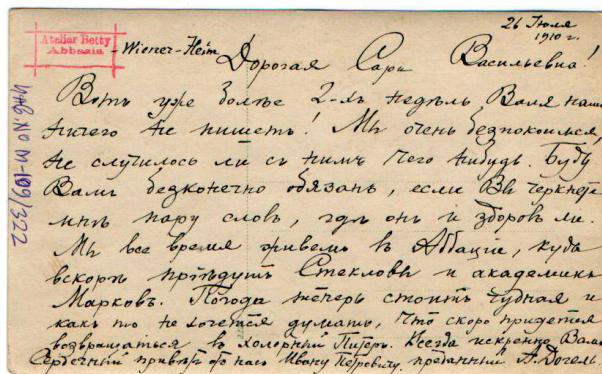 26 Iюля
1910 г.
Atelier Betty
Abbazia
- Wiener-Heim
Дорогая Сара Васильевна!
Вотъ уже болѣе 2-хъ недѣль Валя нашъ
ничего не пишетъ! Мы очень безпокоимся,
не случилось ли съ нимъ чего нибудь. Буду
Вамъ безконечно обязанъ, если Вы черкнете
мнѣ пару словъ, гдѣ онъ и здоровъ ли.
Мы все время живемъ въ Аббаціи, куда
вскорѣ пріѣдутъ Стекловы и академикъ
Марковъ. Погода теперь стоитъ чудная и
какъ то не хочется думать, что скоро придется
возвращаться въ холерный Питеръ. Всегда искренно Вамъ
Сердечный привѣтъ отъ насъ Ивану Петровичу. преданный А. Догель.
Инв. № М-109/322